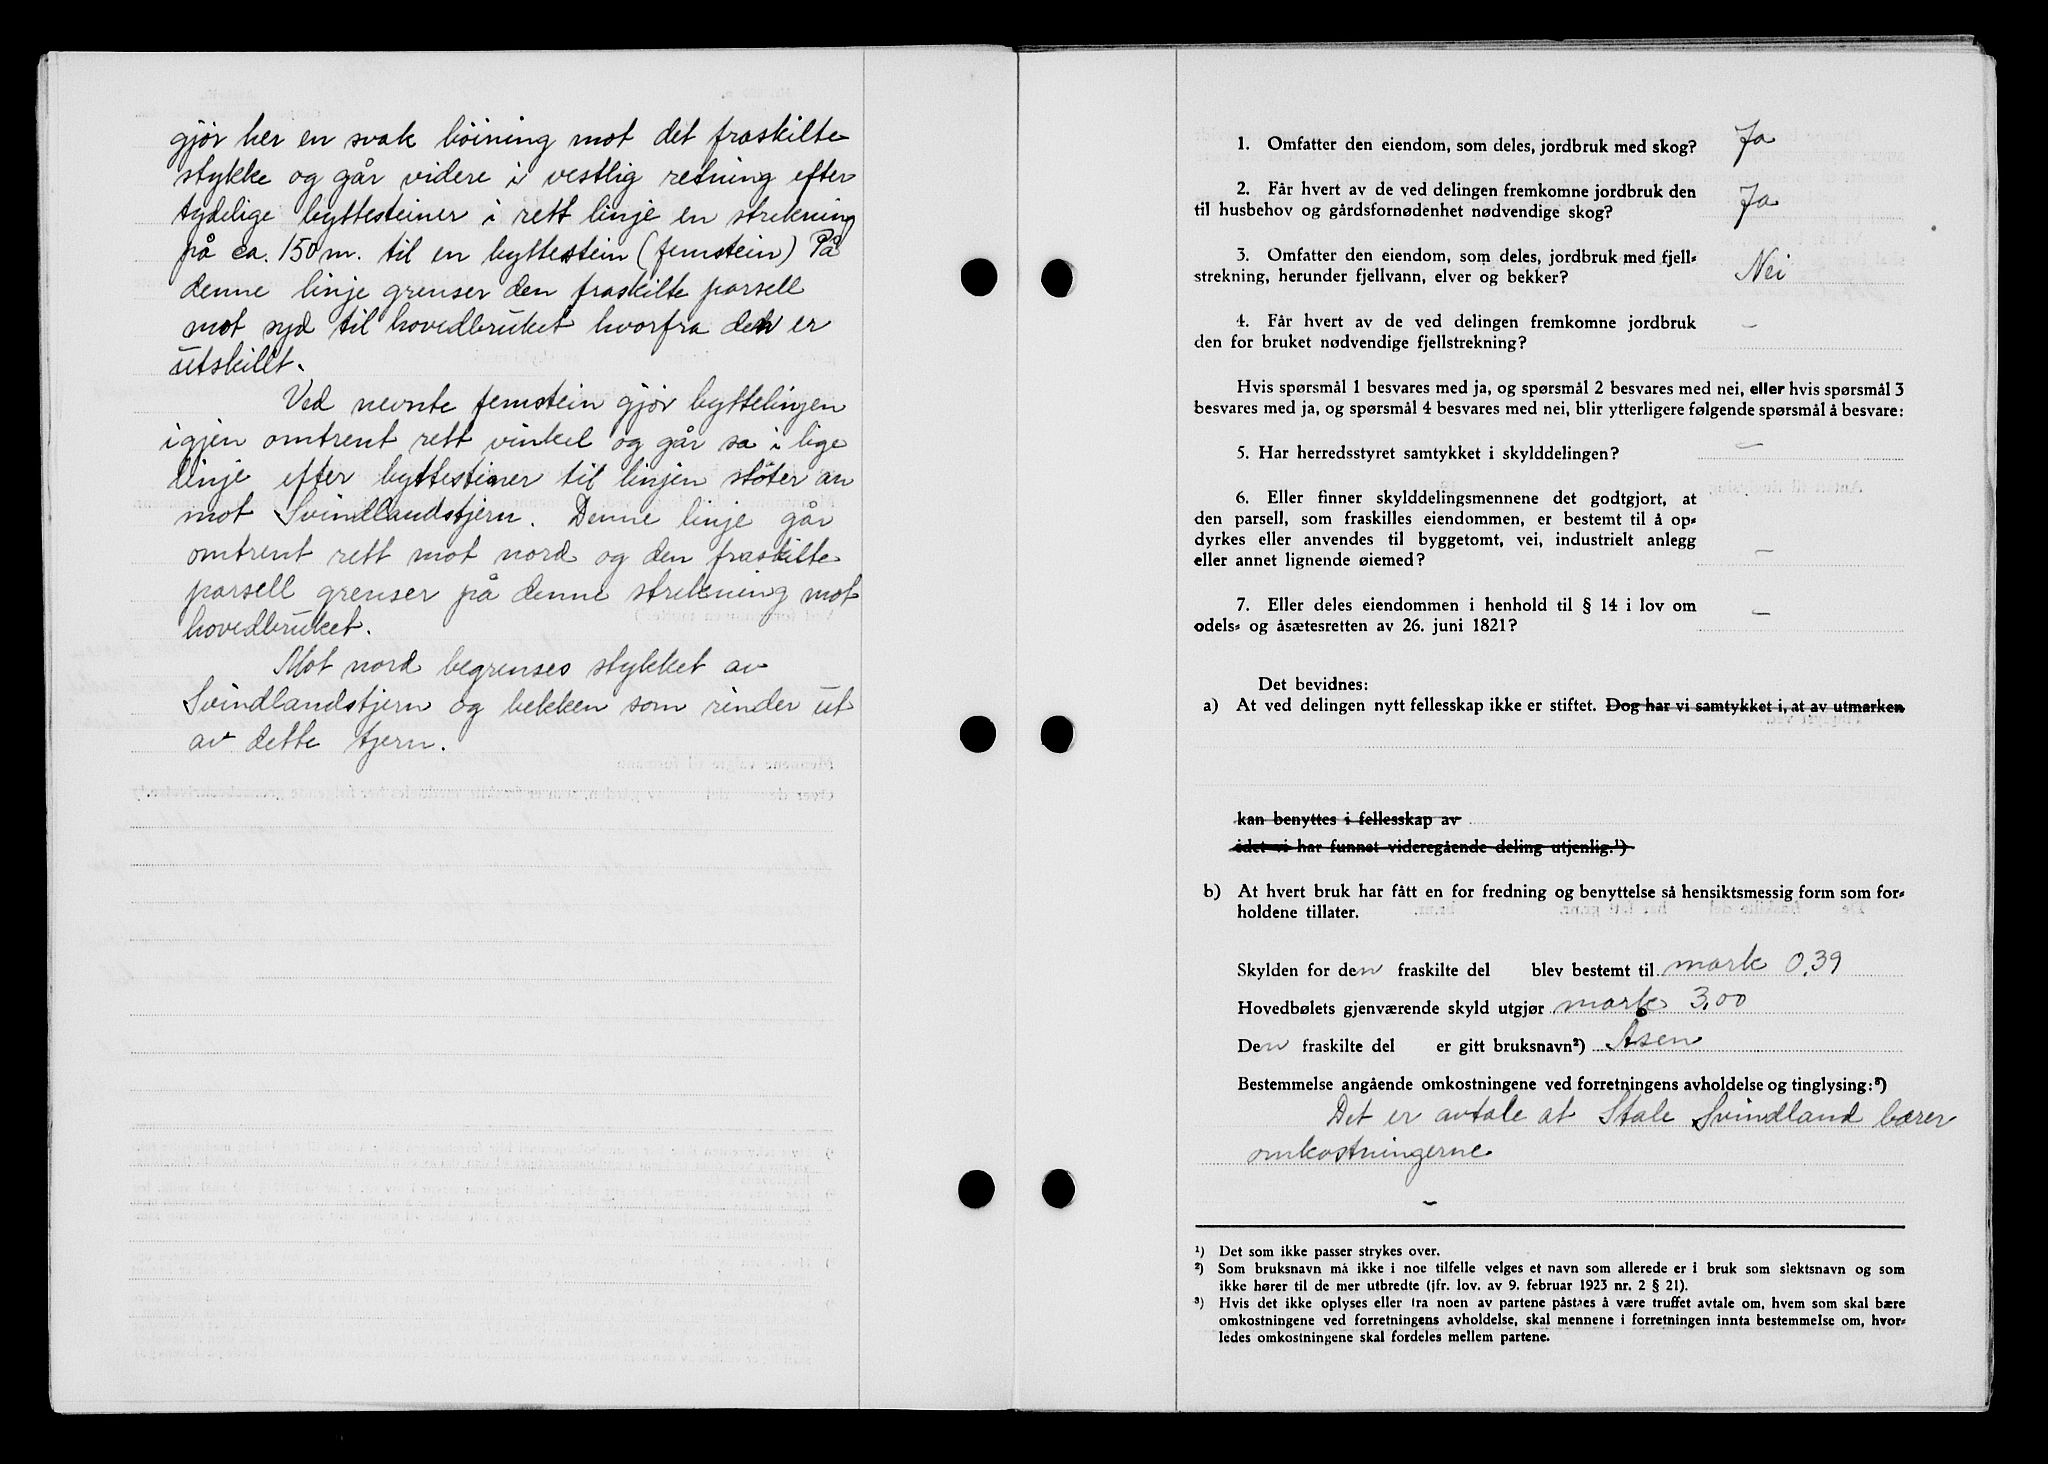 gjør her en svak bøining mot det fraskilte
stykke og går videre i vestlig retning efter
tydelige byttesteiner i rett linje en strekning
på ca. 150 m. til en byttestein (femstein) På
denne linje grenser den fraskilte parsell
mot syd til hovedbruket hvorfra den er
utskillt.
Ved nevnte femstein gjør byttelinjen
igjen omtrent rett vinkel og går sa i lige
linje efter byttestiner til linjen støter an
mot Svindlandstjern. Denne linje går
omtrent rett mot nord og den fraskilte
parsell grenser på denne strekning mot
hovedbruket.
Mot nord begrenses stykket av
Svindlandstjern og bekken som rinder ut
av dette tjern.
1. Omfatter den eiendom, som deles, jordbruk med skog? Ja
2. Får hvert av de ved delingen fremkomne jordbruk den
til husbehov og gårdsfornødenhet nødvendige skog? Ja
3. Omfatter den eiendom, som deles, jordbruk med fjell-
strekning, herunder fjellvann, elver og bekker? Nei
4. Får hvert av de ved delingen fremkomne jordbruk –
den for bruket nødvendige fjellstrekning?
Hvis spørsmål 1 besvares med ja, og spørsmål 2 besvares med nei, eller hvis spørsmål 3
besvares med ja, og spørsmål 4 besvares med nei, blir ytterligere følgende spørsmål å besvare:
5. Har herredsstyret samtykket i skylddelingen? –
6. Eller finner skylddelingsmennene det godtgjort, at
den parsell, som fraskilles eiendommen, er bestemt til å op-
dyrkes eller anvendes til byggetomt, vei, industrielt anlegg
eller annet lignende øiemed? –
7. Eller deles eiendommen i henhold til § 14 i lov om –
odels- og åsætesretten av 26. juni 1821?
Det bevidnes:
a) At ved delingen nytt fellesskap ikke er stiftet. Dog har vi samtykket i, at av utmarken
kan benyttes i fellesskap av
idet vi har funnet videregående deling utjenlig.¹)
b) At hvert bruk har fått en for fredning og benyttelse så hensiktsmessig form som for-
holdene tillater.
Skylden for den fraskilte del blev bestemt til mark 0,39
Hovedbølets gjenværende skyld utgjør mark 3,00
Den fraskilte del er gitt bruksnavn²) Åsen
Bestemmelse angående omkostningene ved forretningens avholdelse og tinglysing:³)
Det er avtale at Stale Svindland bærer
omkostningerne
–
¹) Det som ikke passer strykes over.
²) Som bruksnavn må ikke i noe tilfelle velges et navn som allerede er i bruk som slektsnavn og som
ikke hører til de mer utbredte (jfr. lov. av 9. februar 1923 nr. 2 § 21).
³) Hvis det ikke oplyses eller fra noen av partene påstaes å være truffet avtale om, hvem som skal bære
omkostningene ved forretningens avholdelse, skal mennene i forretningen innta bestemmelse om, hvor-
ledes omkostningene skal fordeles mellem partene.